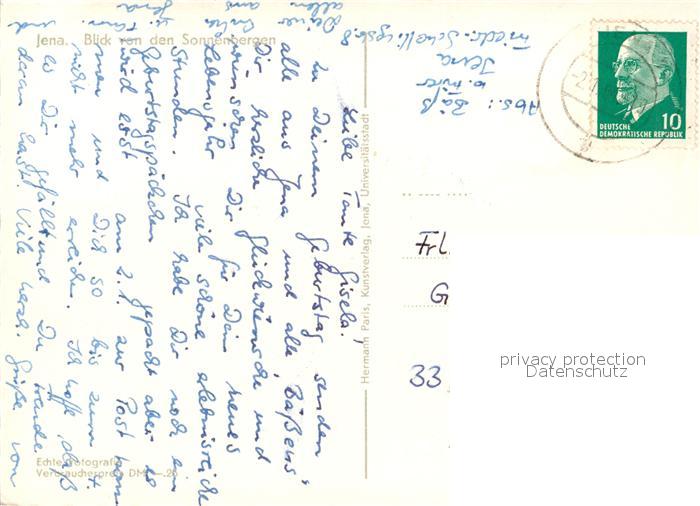 Jena. Blick von den Sonnenbergen
Liebe Tante Gisela!
Zu Deinem Geburtstag senden
alle aus Jena und alle "Bäßeus"
Dir herzliche Glückwünsche und
wünschen Dir für Dein neues
Lebensjahr viele schöne erlebnisreiche
Stunden. Ich habe Dir noch ein
Geburtstagspäckchen gepackt aber es
wird erst am 2.1. zur Post kom
men und Dich so bis zum 4.
nicht mehr erreichen. Ich hoffe, daß
es Dir gefällt und Du Freude
daran hast. Viele herzl. Grüße von
Deiner
allen aus
Jena
Echte Fotografie
Verbraucherpreis DM -.20
Hermann Paris, Kunstverlag, Jena, Universitätsstadt
Abs.: Bäß
Jena
Friedr.-Schelling-Str. 8
DEUTSCHE
DEMOKRATISCHE REPUBLIK
10
Frl.
G
33
privacy protection
Datenschutz